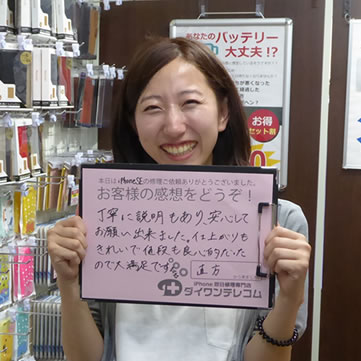 あなたのバッテリー
大丈夫!?
お得
セット割
本日は iPhoneSE の修理ご依頼ありがとうございました。
お客様の感想をどうぞ!
丁寧に説明もあり、安心して
お願い出来ました。仕上がりも
きれいで値段も良心的だった
ので大満足です。
直方
iPhone 即日修理専門店
ダイワンテレコム